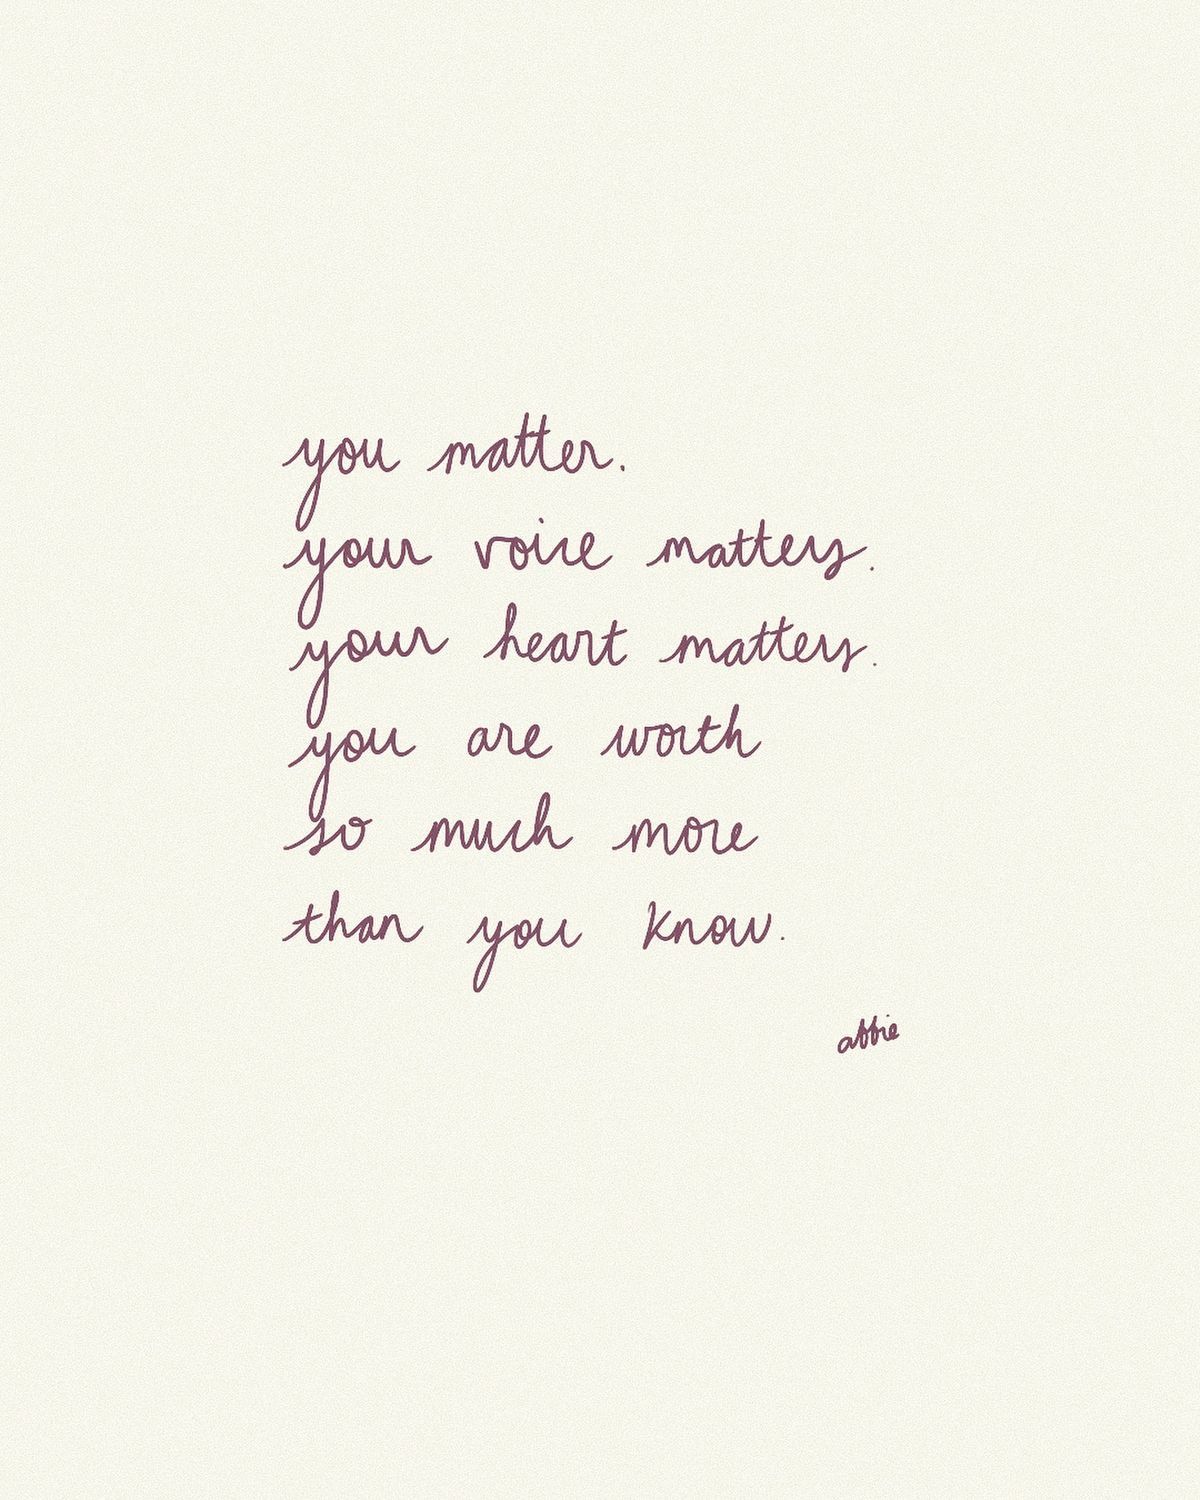 you matter.
your voice matters.
your heart matters.
you are worth
so much more
than you know.
abbie